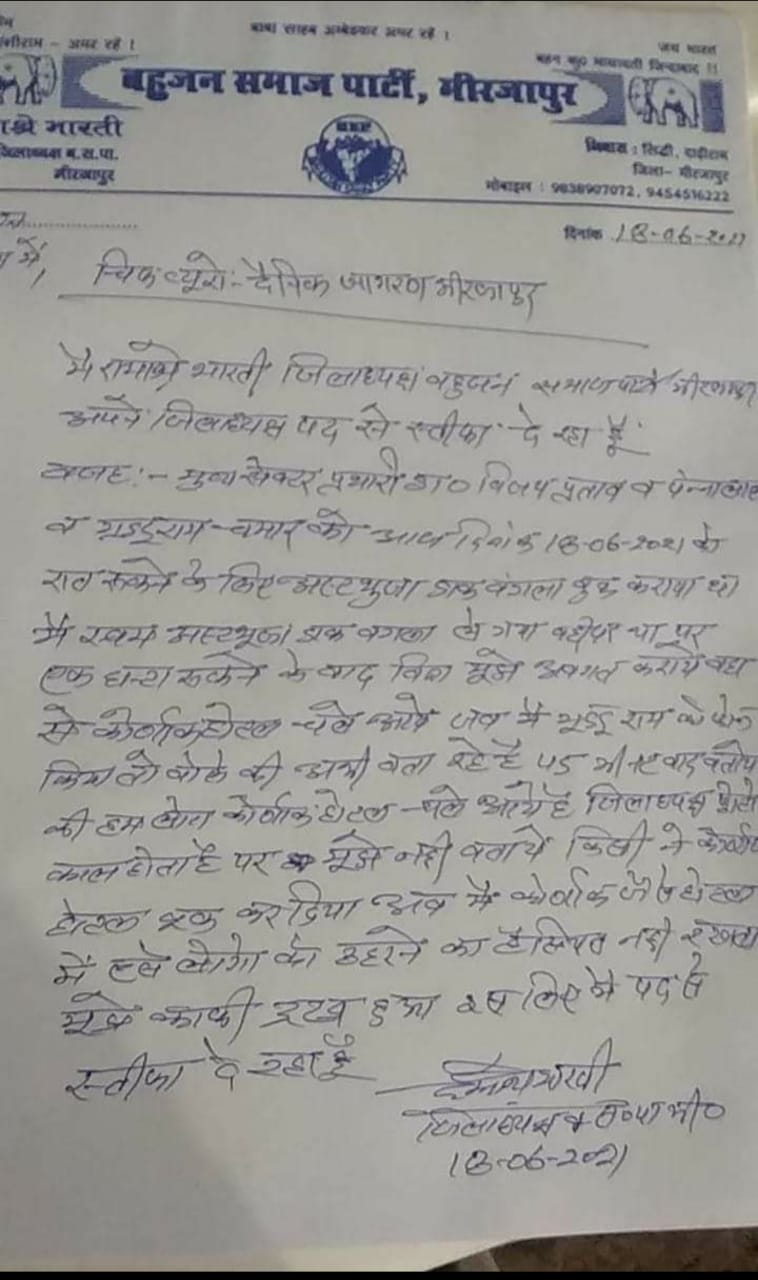 कांशीराम - अमर रहें !
बाबा साहब अम्बेडकर अमर रहें !
जय भारत
बहन कु० मायावती जिन्दाबाद !!
बहुजन समाज पार्टी, मीरजापुर
भारती
जिलाध्यक्ष ब.स.पा.
मीरजापुर
BSP
निवास : सिटी, दाढ़ीराम
जिला- मीरजापुर
मोबाइल : 9838907072, 9454516222
दिनांक 18-06-2021
में,
व्यूरो - दैनिक जागरण मीरजापुर
मै भारती जिलाध्यक्ष बहुजन समाज पार्टी मीरजापुर
अपने जिलाध्यक्ष पद से स्तीफा दे रहा हूँ
वजह :- मुख्य सेक्टर प्रभारी डा० विजय प्रताप व
व गुडडूराम चमार को आज दिनांक 18-06-2021 को
रात रूकने के लिए अस्टभुजा डाक बंगला बुक कराया था
मै स्वयम अस्टभूजा डाक बंगला ले गया पर
एक घन्टा रूकने के बाद बिना मुझे अवगत कराये वहा
से होटल चले आये जब मै गुडडू राम को फोन
किया तो बोले की अभी बता रहे है
की हम लोग होटल चले आये है जिलाध्यक्ष
काल होता है पर मुझे नही बताये किसी ने
होटल बुक कर दिया अब मै कोर्णाक जैसे होटल
में लोगो को ठहरने का हैसियत नही रखता
मुझे काफी दुख हुआ इस लिए मै पद से
स्तीफा दे रहा हूँ
जिलाध्यक्ष
18-06-2021